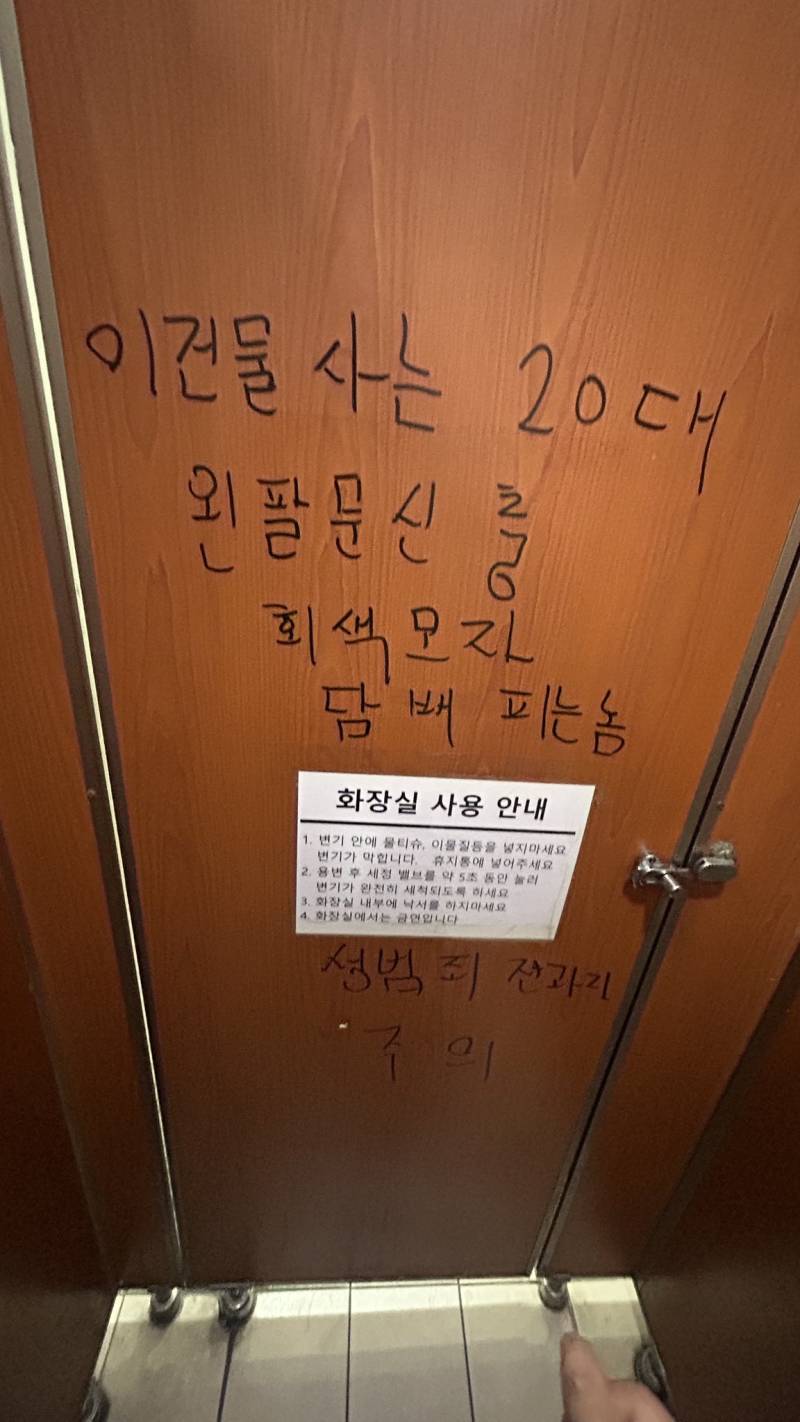 이건물 사는 20대
왼팔문신 흉
회색모자
담배 피는놈
화장실 사용 안내
1. 변기 안에 물티슈, 이물질등을 넣지마세요
변기가 막힙니다. 휴지통에 넣어주세요
2. 용변 후 세정 밸브를 약 5초 동안 눌러
변기가 완전히 세척되도록 하세요
3. 화장실 내부에 낙서를 하지마세요
4. 화장실에서는 금연입니다
성범죄 전과기
주의